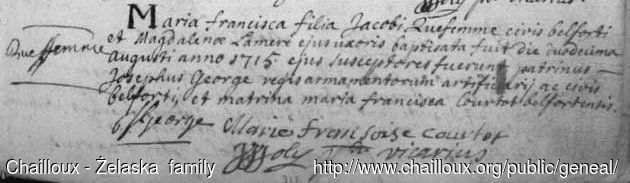 Maria francisca filia Jacobi Quefemme civis belforti
et Magdalenæ Lamere ejus uxoris baptisata fuit die duodecima
Quefemme
augusti anno 1715 ejus susceptores fuerunt patrinus
Josephus George regis armamantorum artificiarij ac civis
belfortij, et matrina maria francisca Courtot belfortensis.
George Marie Françoise Courtot
Joly vicarius
Chailloux - Żelaska family http://www.chailloux.org/public/geneal/